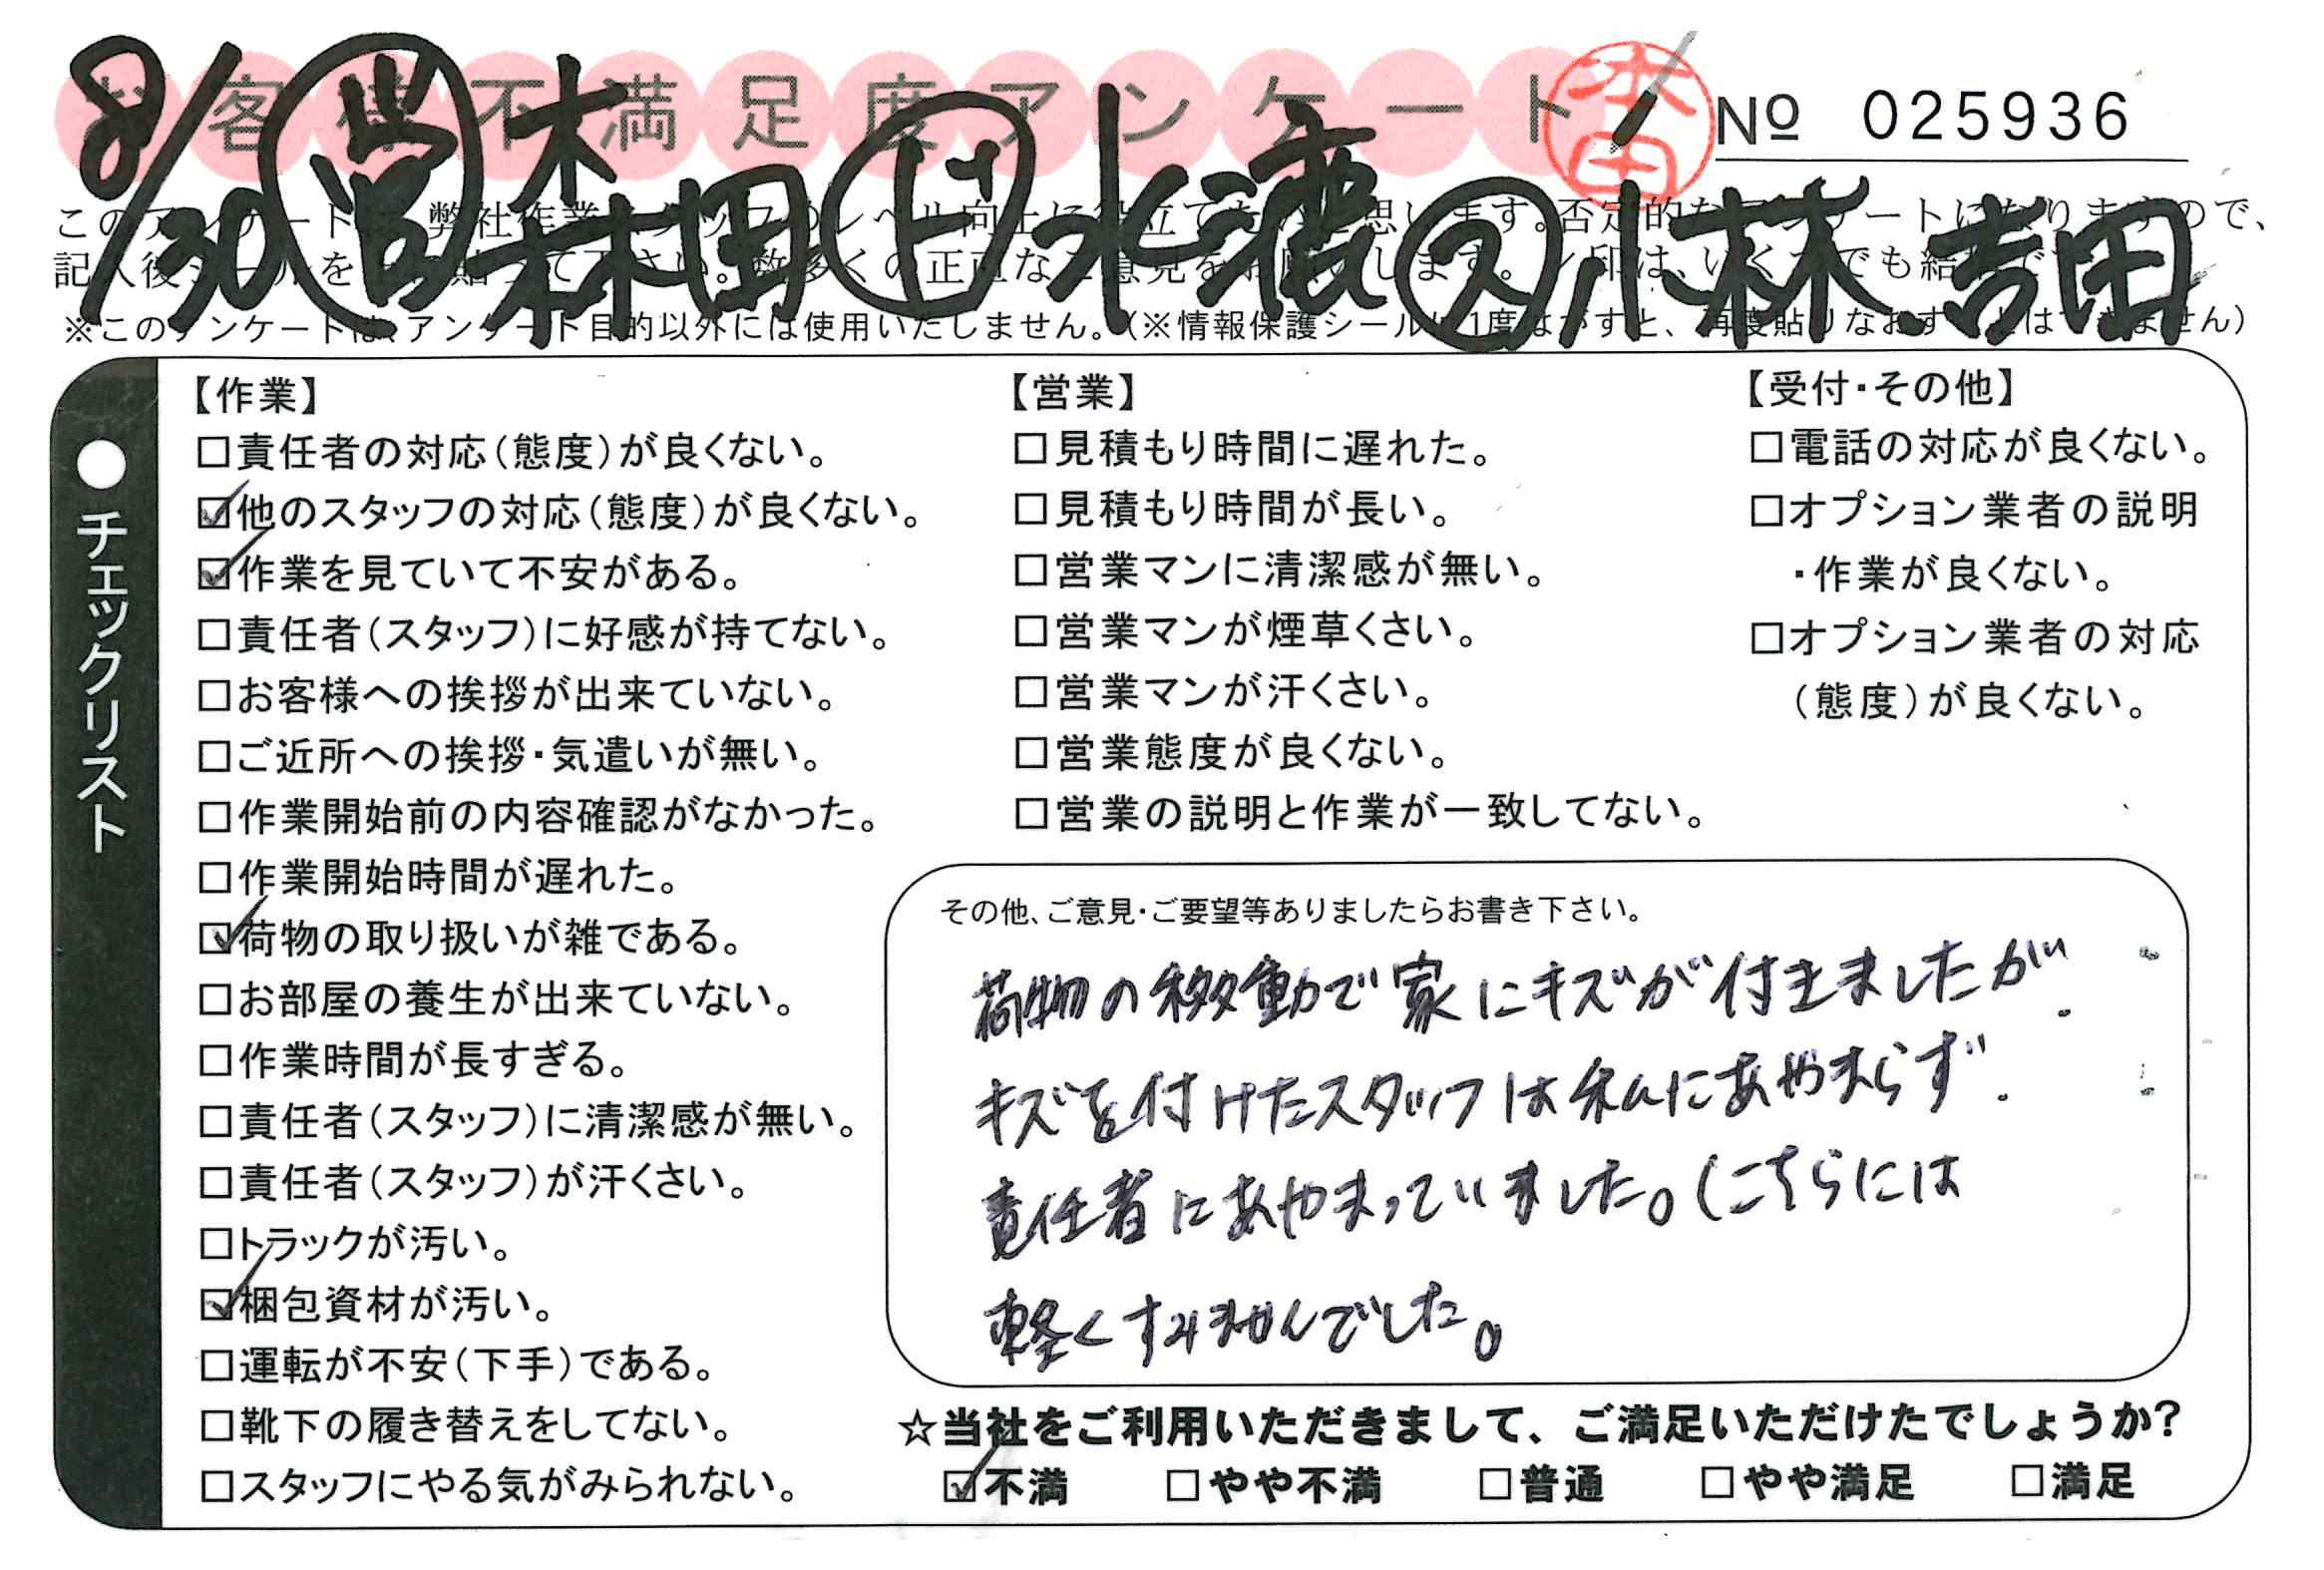 お客様不満足度アンケート
No 025936
8/30 営 林田 上 水 ス 小林 吉田
このアンケート 弊社作業 レベル向上に役立て 思します。否定的な ケートになりますので、
記入後シールを 貼って下さい。数多くの正直なご意見をお願いします。 印は、いくつでも結構で
※このアンケートは、アンケート目的以外には使用いたしません。(※情報保護シールは1度はがすと、再度貼りなおすことはできません)
●チェックリスト
【作業】
□責任者の対応(態度)が良くない。
☑他のスタッフの対応(態度)が良くない。
☑作業を見ていて不安がある。
□責任者(スタッフ)に好感が持てない。
□お客様への挨拶が出来ていない。
□ご近所への挨拶・気遣いが無い。
□作業開始前の内容確認がなかった。
□作業開始時間が遅れた。
☑荷物の取り扱いが雑である。
□お部屋の養生が出来ていない。
□作業時間が長すぎる。
□責任者(スタッフ)に清潔感が無い。
□責任者(スタッフ)が汗くさい。
□トラックが汚い。
☑梱包資材が汚い。
□運転が不安(下手)である。
□靴下の履き替えをしてない。
□スタッフにやる気がみられない。
【営業】
□見積もり時間に遅れた。
□見積もり時間が長い。
□営業マンに清潔感が無い。
□営業マンが煙草くさい。
□営業マンが汗くさい。
□営業態度が良くない。
□営業の説明と作業が一致してない。
【受付・その他】
□電話の対応が良くない。
□オプション業者の説明
・作業が良くない。
□オプション業者の対応
(態度)が良くない。
その他、ご意見・ご要望等ありましたらお書き下さい。
荷物の移動で家にキズが付きましたが、
キズを付けたスタッフは私にあやまらず、
責任者にあやまっていました。(こちらには
軽くすみませんでした。
☆当社をご利用いただきまして、ご満足いただけたでしょうか?
☑不満 □やや不満 □普通 □やや満足 □満足